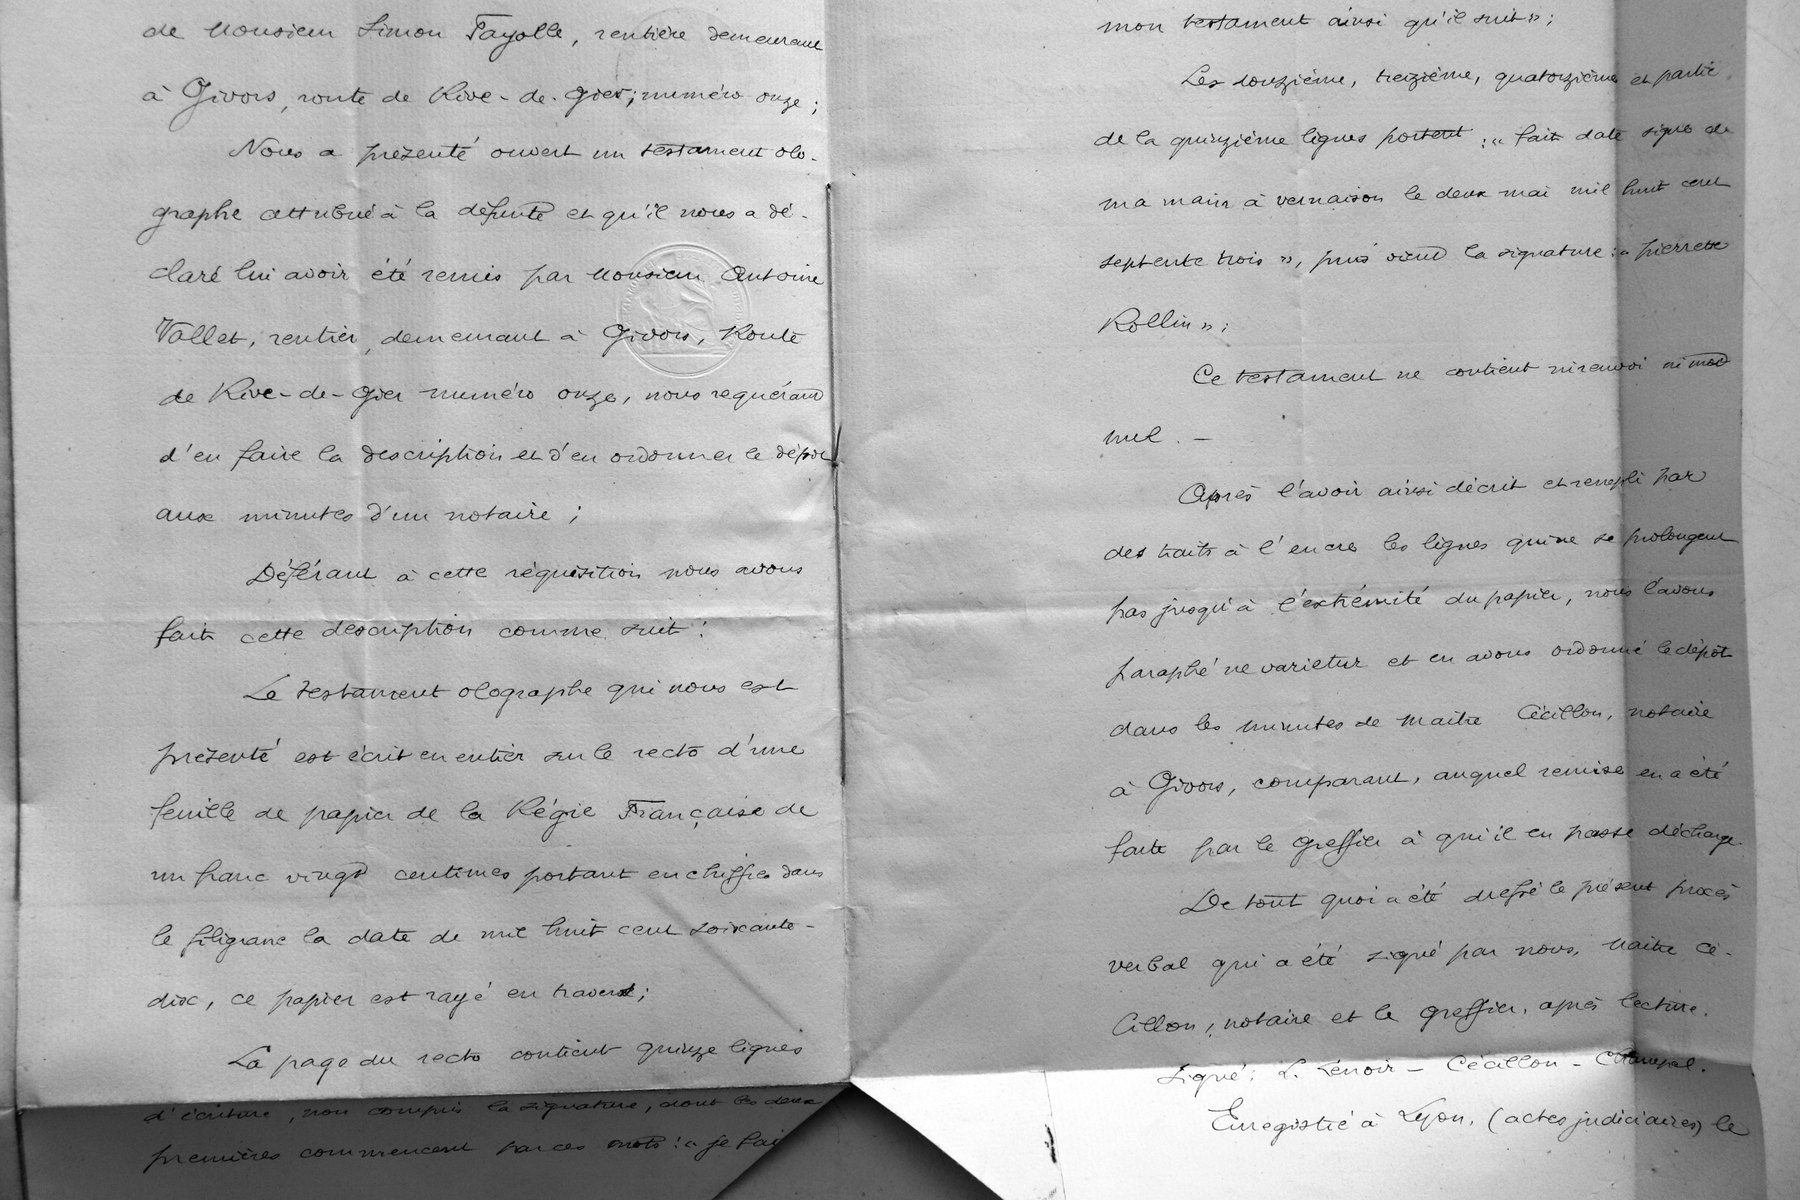 de Monsieur Simon Fayolle, rentière demeurant
à Givors, route de Rive-de-Gier, numéro onze;
Nous a présenté ouvert un testament olo-
graphe attribué à la défunte et qu'il nous a dé-
claré lui avoir été remis par Monsieur Antoine
Vallet, rentier, demeurant à Givors, Route
de Rive-de-Gier numéro onze, nous requérant
d'en faire la description et d'en ordonner le dépôt
aux minutes d'un notaire;
Déférant à cette réquisition nous avons
fait cette description comme suit:
Le testament olographe qui nous est
présenté est écrit en entier sur le recto d'une
feuille de papier de la Régie Française de
un franc vingt centimes portant en chiffres dans
le filigrane la date de mil huit cent soixante-
dix, ce papier est rayé en travers;
La page du recto contient quinze lignes
d'écriture, non compris la signature, dont les deux
premières commencent par ces mots: « je fais
mon testament ainsi qu'il suit »;
Les douzième, treizième, quatorzième et partie
de la quinzième lignes portent: « fait daté signé de
ma main à vernaison le deux mai mil huit cent
septente trois », puis vient la signature: « pierrette
Rollin »;
Ce testament ne contient ni renvoi ni mot
nul. —
Après l'avoir ainsi décrit et rempli par
des traits à l'encre les lignes qui ne se prolongent
pas jusqu'à l'extrémité du papier, nous l'avons
paraphé ne varietur et en avons ordonné le dépôt
dans les minutes de Maître Cécillon, notaire
à Givors, comparant, auquel remise en a été
faite par le Greffier à qui il en passe décharge.
De tout quoi a été dressé le présent procès
verbal qui a été signé par nous, Maître Cé-
cillon, notaire et le greffier, après lecture.
Signé: L. Lénoir - Cécillon -
Enregistré à Lyon, (actes judiciaires) le